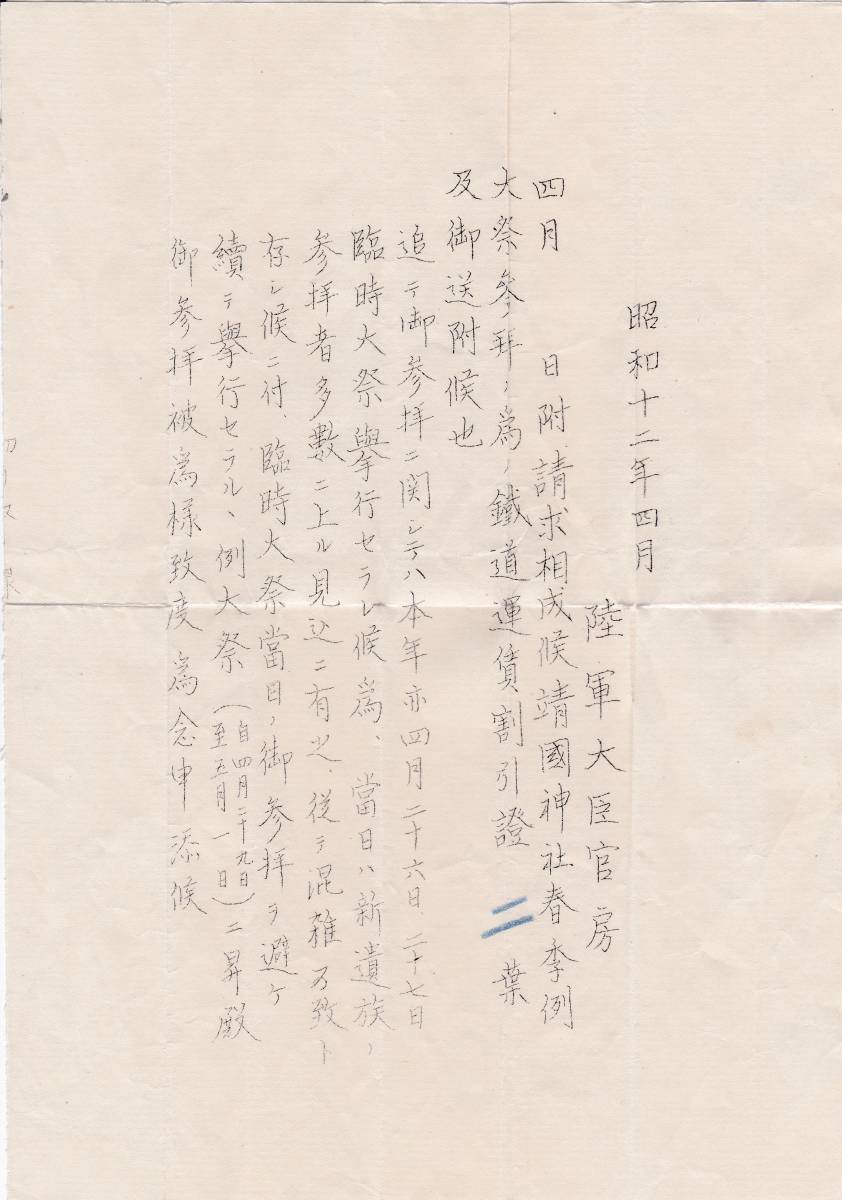 昭和十二年四月
陸軍大臣官房
四月　　日附請求相成候靖國神社春季例
大祭參拜ノ為ノ鐵道運賃割引證　二　葉
及御送附候也
追テ御參拜ニ関シテハ本年亦四月二十六日、二十七日
臨時大祭擧行セラレ候為、當日ハ新遺族ノ
参拜者多數ニ上ル見込ニ有之、從テ混雑可致ト
存シ候ニ付、臨時大祭當日ノ御参拜ヲ避ケ
續テ擧行セラルヽ例大祭（自四月二十九日至五月一日）ニ昇殿
御参拜被為様致度為念申添候